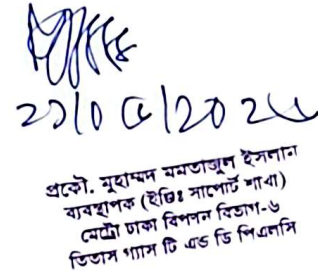 প্রকৌ. মুহাম্মদ মমতাজুল ইসলাম
ব্যবস্থাপক (ইভিঃ সাপোর্ট শাখা)
মেট্রো ঢাকা বিপণন বিভাগ-৬
তিতাস গ্যাস টি এন্ড ডি পিএলসি